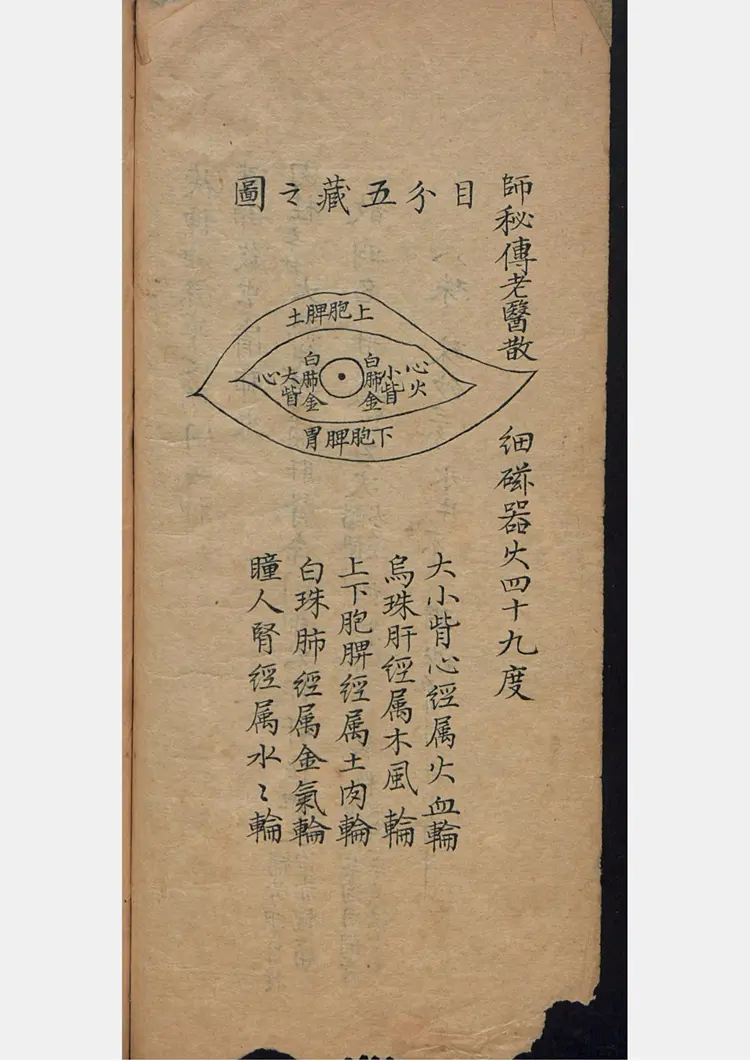 師秘傳老醫散 細磁器火四十九度
目分五藏之圖
上胞脾土
心火
小眥
白肺金
白肺金
大眥
心
下胞脾胃
大小眥心經属火血輪
烏珠肝經属木風輪
上下胞脾經属土肉輪
白珠肺經属金氣輪
瞳人腎經属水〻輪